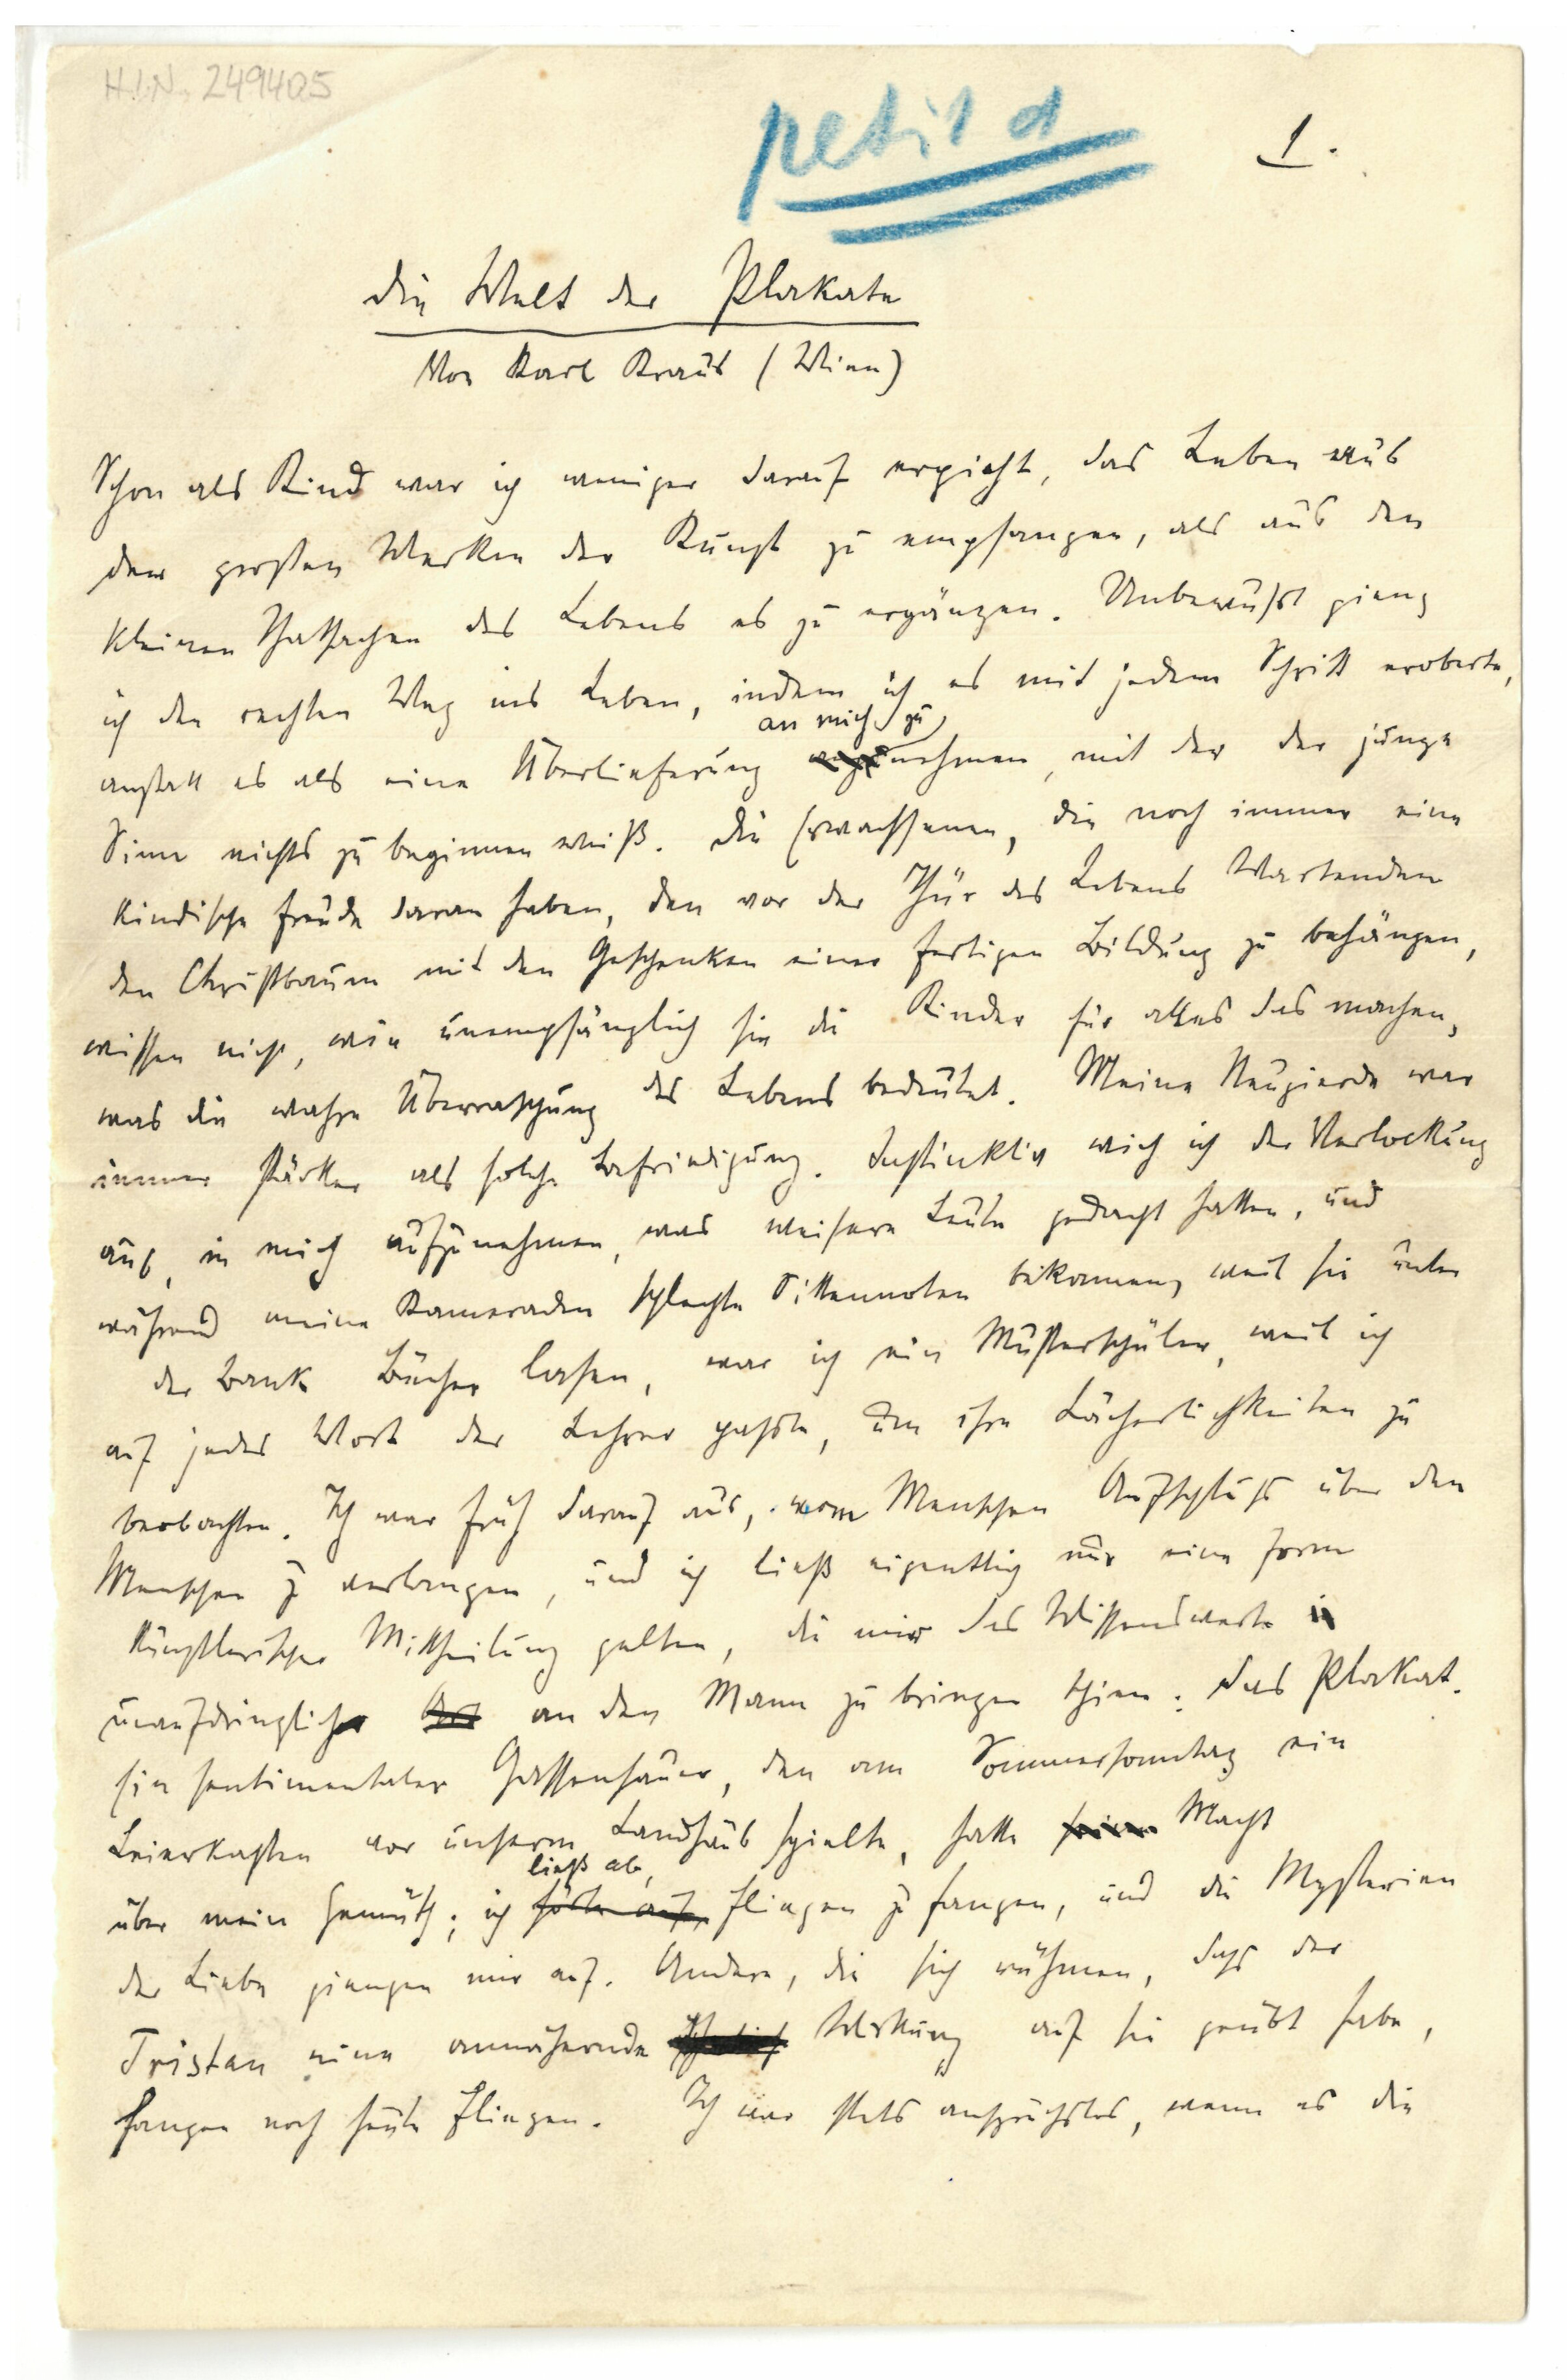 H.I.N. 249405
petit d
1.
Die Welt der Plakate
Von Karl Kraus (Wien)
Schon als Kind war ich weniger darauf erpicht, das Leben aus
den großen Werken der Kunst zu empfangen, als aus den
kleinen Thatsachen des Lebens es zu ergänzen. Unbewußt gieng
ich den rechten Weg ins Leben, indem ich es mit jedem Schritt eroberte,
an mich zu
anstatt es als eine Überlieferung nehmen, mit der der junge
Sinn nichts zu beginnen weiß. Die Erwachsenen, die noch immer eine
kindische Freude daran haben, den vor der Thür des Lebens Wartenden
den Christbaum mit den Geschenken einer fertigen Bildung zu behängen,
wissen nicht, wie unempfänglich sie die Kinder für alles das machen,
was die wahre Überraschung des Lebens bedeutet. Meine Neugierde war
immer stärker als solche Befriedigung. Instinktiv wich ich der Verlockung
aus, in mich aufzunehmen, was weisere Leute gedacht hatten, und
während meine Kameraden schlechte Sittennoten bekamen, weil sie unter
der Bank Bücher lasen, war ich ein Musterschüler, weil ich
auf jedes Wort der Lehrer passte, um ihre Lächerlichkeiten zu
beobachten. Ich war früh darauf aus, vom Menschen Aufschluss über den
Menschen zu verlangen, und ich ließ eigentlich nur eine Form
künstlerischer Mittheilung gelten, die mir das Wissenswerte in
unaufdringlicher Art an den Mann zu bringen schien: das Plakat.
Ein sentimentaler Gassenhauer, den am Sommersonntag ein
Leierkasten vor unserm Landhaus spielte, hatte seine Macht
ließ ab,
über mein Gemüth; ich hörte auf, Fliegen zu fangen, und die Mysterien
der Liebe giengen mir auf. Andere, die sich rühmen, dass der
Tristan eine annähernde Wirkung auf sie geübt habe,
fangen noch heute Fliegen. Ich war stets anspruchslos, wenn es die